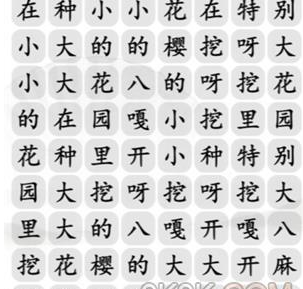 在种小小花在特别
小大的的樱挖呀大
小大花八的呀挖花
的在园嘎小挖里园
花种里开小种特别
园大挖呀挖呀挖大
里大的八嘎开嘎八
挖花樱的大大开麻